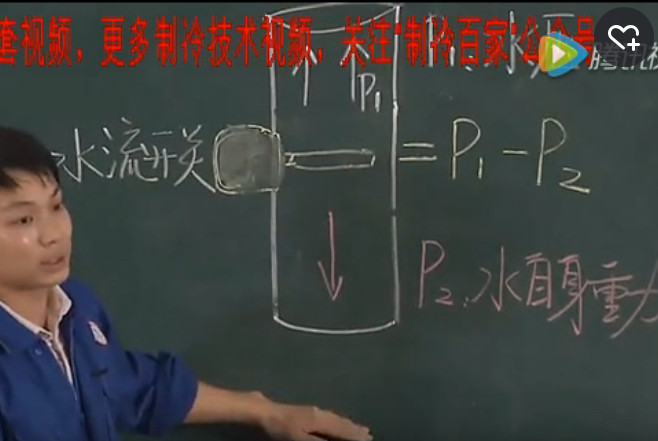 套视频，更多制冷技术视频，关注"制冷百家"公众号
P₁
水流开关
= P₁ - P₂
P₂:水自身重力